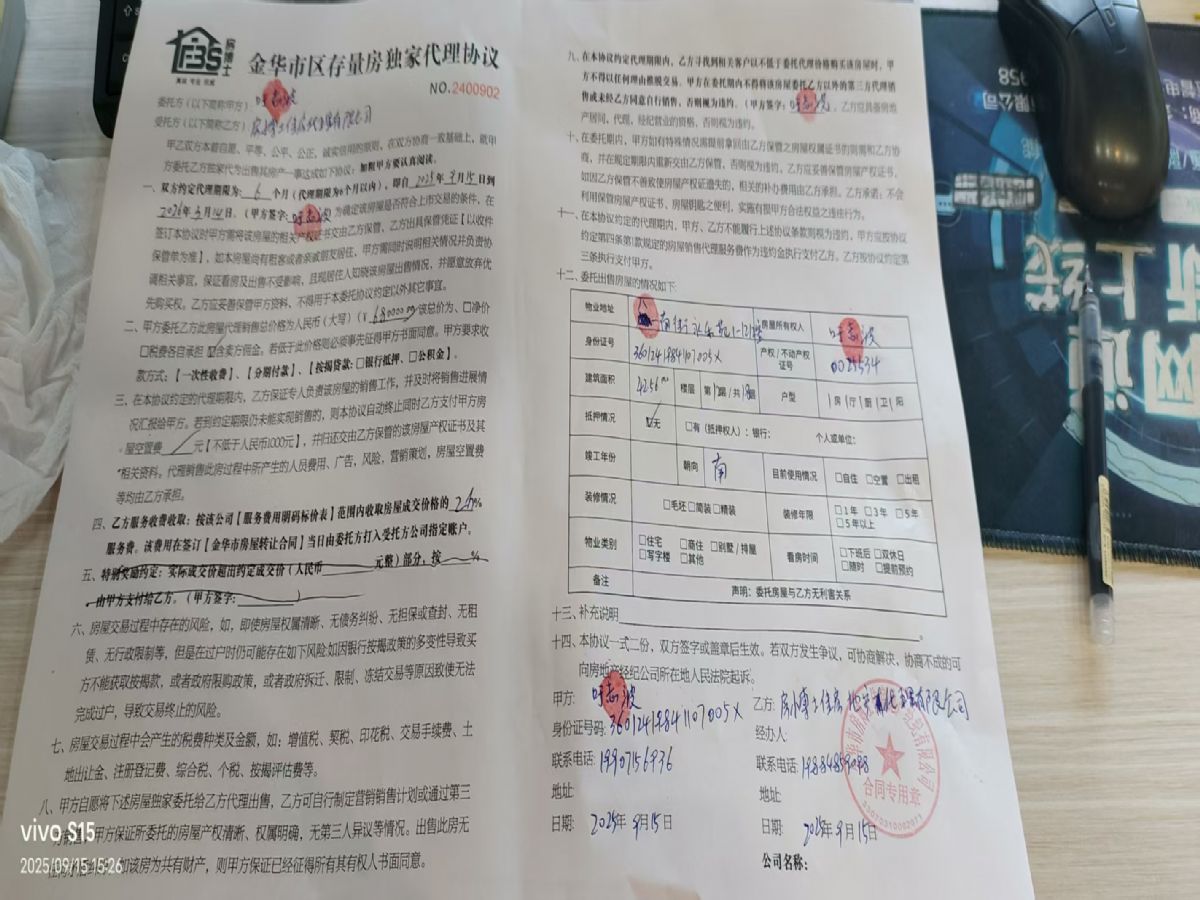 房博士
真诚 专业 快捷
金华市区存量房独家代理协议
NO.2400902
委托方（以下简称甲方）叶志波
受托方（以下简称乙方）
甲乙双方本着自愿、平等、公平、公正、诚实信用的原则，在双方协商一致基础上，就甲
方委托乙方独家代为出售其房产一事达成如下协议：如期甲方要认真阅读。
一、双方约定代理期限为：6个月（代理期限为6个月以内），即自2025年9月15日到
2026年3月14日。（甲方签字：叶志波 为确定该房屋是否符合上市交易的条件，在
签订本协议时甲方需将该房屋的相关产权证书交由乙方保管，乙方出具保管凭证【以收件
保管单为准】，如本房屋尚有租客或者亲戚朋友居住，甲方需同时说明相关情况并负责协
调相关事宜，保证看房及出售不受影响，且现居住人知晓该房屋出售情况，并愿意放弃优
先购买权。乙方应妥善保管甲方资料，不得用于本委托协议约定以外其它事宜。
二、甲方委托乙方此房屋代理销售总价格为人民币（大写）（¥ 680000 元）该总价为、□净价
□税费各自承担 ☑含卖方佣金。若低于此价格则必须事先征得甲方书面同意。甲方要求收
款方式：【一次性收费】、【分期付款】、【按揭贷款：□银行抵押、□公积金】。
三、在本协议约定的代理期限内，乙方保证专人负责该房屋的销售工作，并及时将销售进展情
况汇报给甲方。若到约定期限仍未能实现销售的，则本协议自动终止同时乙方支付甲方房
屋空置费 / 元【不低于人民币1000元】，并归还交由乙方保管的该房屋产权证书及其
相关资料。代理销售此房过程中所产生的人员费用、广告，风险，营销策划，房屋空置费
等均由乙方承担。
四、乙方服务收费收取：按该公司【服务费用明码标价表】范围内收取房屋成交价格的 %
服务费。该费用在签订【金华市房屋转让合同】当日由委托方打入受托方公司指定账户。
五、特别奖励约定：实际成交价超出约定成交价（人民币 元整）部分，按 %
由甲方支付给乙方。（甲方签字： ）
六、房屋交易过程中存在的风险，如，即使房屋权属清晰、无债务纠纷、无担保或查封、无租
赁、无行政限制等，但是在过户时仍可能存在如下风险如因银行按揭政策的多变性导致买
方不能获取按揭款，或者政府限购政策，或者政府拆迁、限制、冻结交易等原因致使无法
完成过户，导致交易终止的风险。
七、房屋交易过程中会产生的税费种类及金额，如：增值税、契税、印花税、交易手续费、土
地出让金、注册登记费、综合税、个税、按揭评估费等。
八、甲方自愿将下述房屋独家委托给乙方代理出售，乙方可自行制定营销销售计划或通过第三
甲方保证所委托的房屋产权清晰、权属明确，无第三人异议等情况。出售此房无
如该房为共有财产，则甲方保证已经征得所有其有权人书面同意。
九、在本协议约定代理期限内，乙方寻找到相关客户以不低于委托代理价格购买该房屋时，甲
方不得以任何理由推脱交易，甲方在委托期内不得将该房屋委托乙方以外的第三方代理销
售或未经乙方同意自行销售，否则视为违约。（甲方签字：叶志波 ，乙方应具备房地
产居间，代理，经纪执业的资格，否则视为违约。
十、在委托期内，甲方如有特殊情况需提前拿回由乙方保管之房屋权属证书的则需和乙方协
商，并在规定期限内重新交由乙方保管，否则视为违约，乙方应妥善保管房屋产权证书，
如因乙方保管不善致使房屋产权证遗失的，相关的补办费用由乙方承担。乙方承诺：不会
利用保管房屋产权证书、房屋钥匙之便利，实施有损甲方合法权益之违法行为。
十一、在本协议约定的代理期内，甲方、乙方不能履行上述协议条款则视为违约，甲方应按协议
约定第四条第1款规定的房屋销售代理服务费作为违约金执行支付乙方。乙方按协议约定第
三条执行支付甲方。
十二、委托出售房屋的情况如下:
物业地址 房屋所有权人 叶志波
身份证号 36012419841107005X 产权/不动产权证号 0025534
建筑面积 42.56 m² 楼层 第 层/共 层 户型 房 厅 厨 卫 阳
抵押情况 ☑无 □有（抵押权人）：银行： 个人或单位：
竣工年份 朝向 南 目前使用情况 □自住 □空置 □出租
装修情况 □毛坯 □简装 □精装 装修年限 □1年 □3年 □5年 □5年以上
物业类别 □住宅 □商住 □别墅/排屋 □写字楼 □其他 看房时间 □下班后 □双休日 □随时 □提前预约
备注 声明：委托房屋与乙方无利害关系
十三、补充说明
十四、本协议一式二份，双方签字或盖章后生效。若双方发生争议，可协商解决，协商不成的可
向房地产经纪公司所在地人民法院起诉。
甲方: 叶志波
身份证号码: 36012419841107005X
联系电话: 19907156936
地址:
日期: 2025年9月15日
乙方:
经办人:
联系电话:
地址
日期: 2025年9月15日
公司名称:
合同专用章
vivo S15
2025/09/15 15:26
958